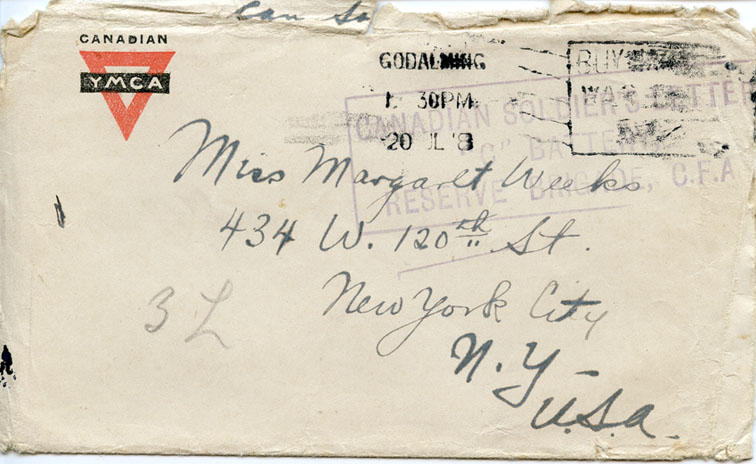 Can So
CANADIAN
YMCA
GODALMING
30PM
20 JL 18
BUY
WAR
CANADIAN SOLDIER'S LETTE
"C" BATTERY
RESERVE BRIGADE, C.F.A
Miss Margaret Weeks
434 W. 120th St.
New York City
N.Y-
U.S.A.
3 L